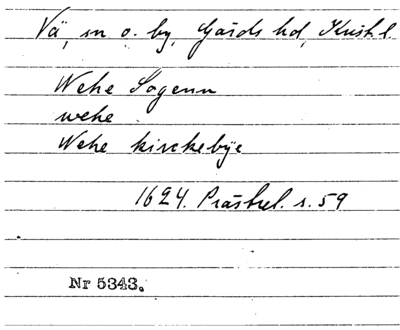 Vä, sn o. by, Gärds hd, Krist. l.
Wehe Sogenn
wehe
Wehe kirckebÿe
1624. Prästrel. s. 59
Nr 5343.